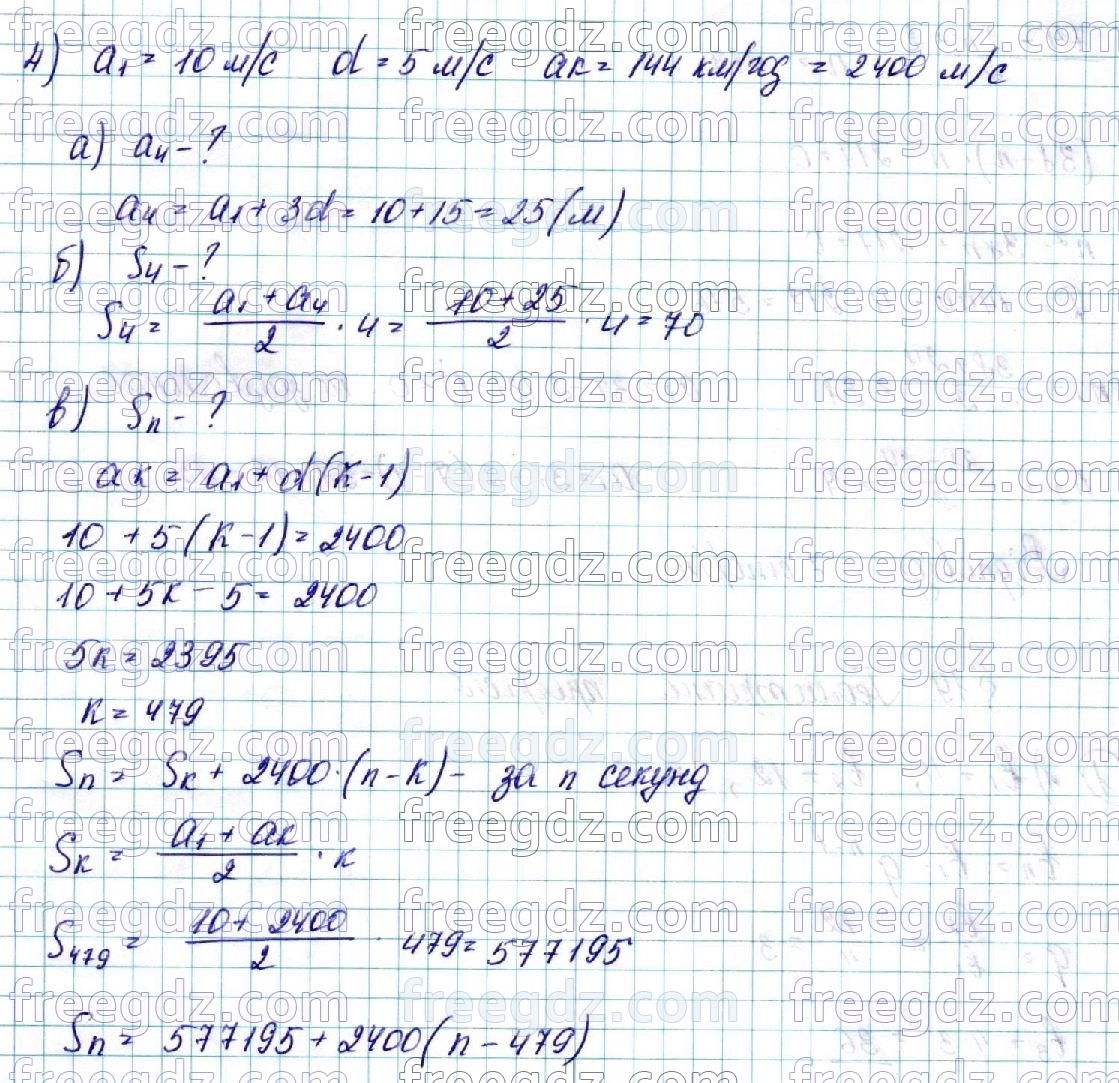 4) a₁ = 10 м/с d = 5 м/с aк = 144 км/год = 2400 м/с
а) a₄ - ?
a₄ = a₁ + 3d = 10 + 15 = 25 (м)
б) S₄ - ?
S₄ = (a₁ + a₄)/2 · 4 = (10 + 25)/2 · 4 = 70
в) Sn - ?
aк = a₁ + d(к-1)
10 + 5(к-1) = 2400
10 + 5к - 5 = 2400
5к = 2395
к = 479
Sn = Sк + 2400·(n-к) - за n секунд
Sк = (a₁ + aк)/2 · к
S₄₇₉ = (10 + 2400)/2 · 479 = 577195
Sn = 577195 + 2400(n - 479)
freegdz.com